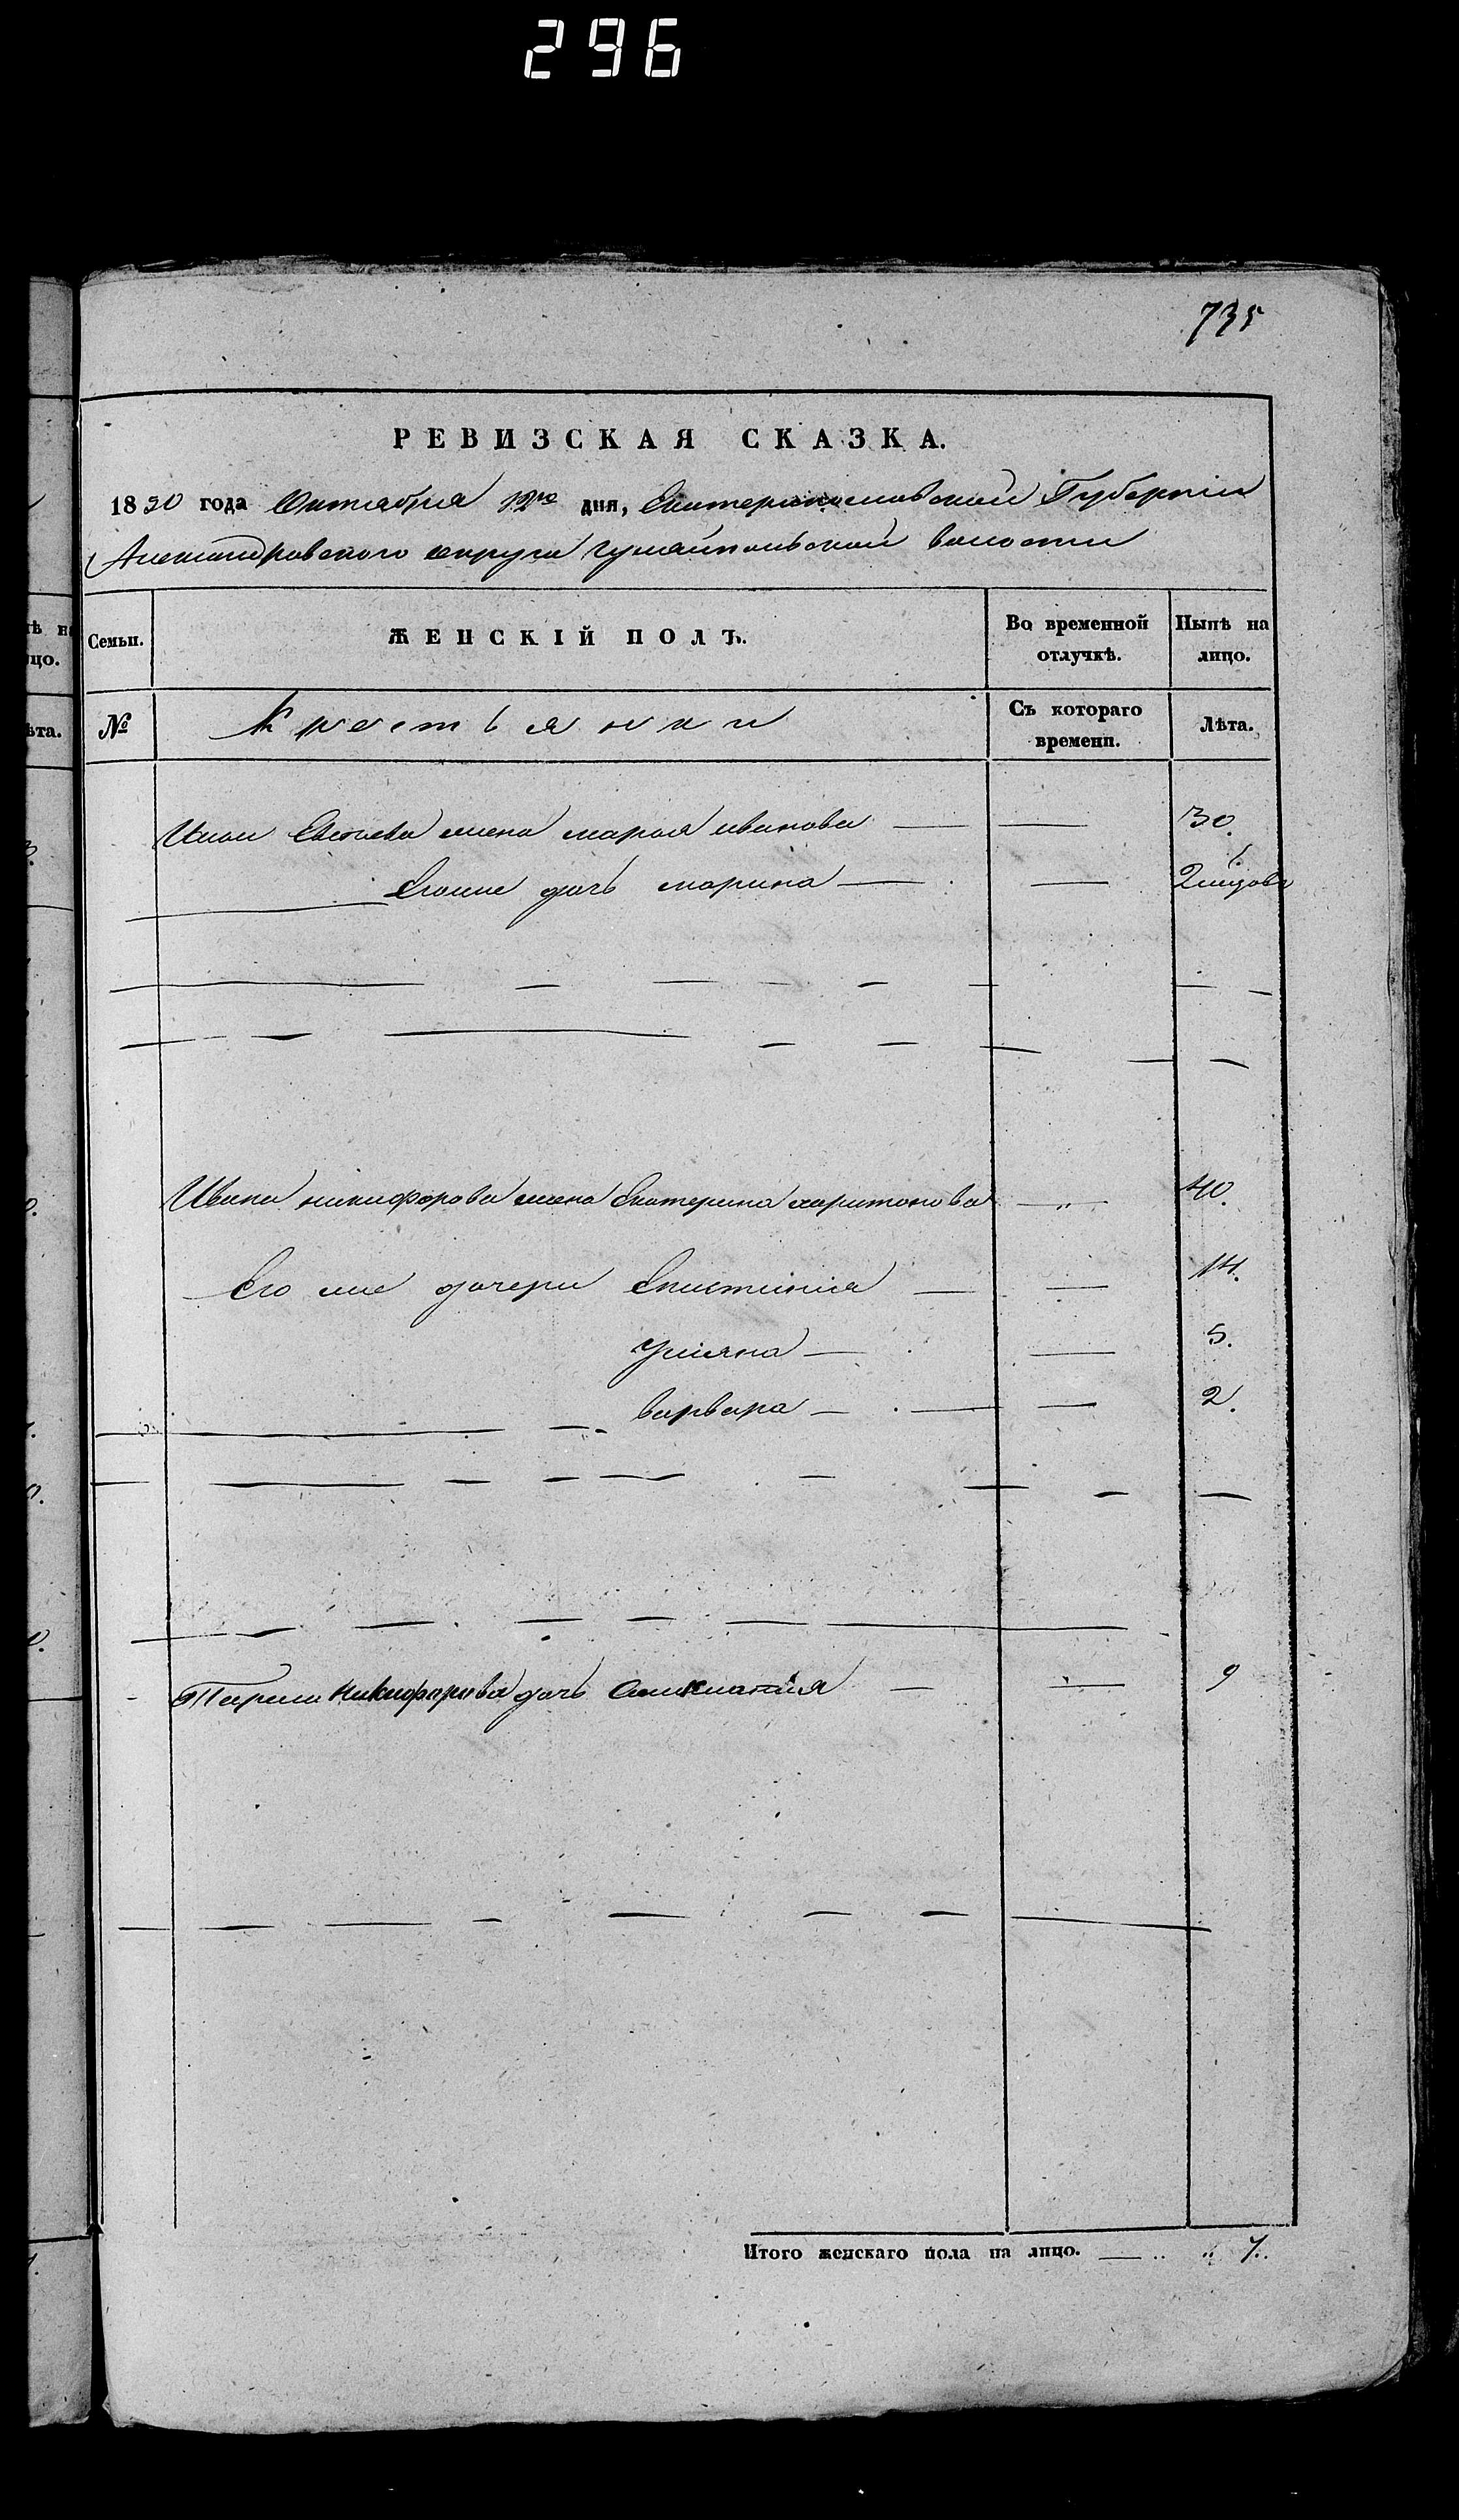 296
735
РЕВИЗСКАЯ СКАЗКА.
1850 года Октября 12го дня, Екатеринославской Губерніи
Александровского округа Гуляйпольской волости
Семьи.
ЖЕНСКІЙ ПОЛЪ.
Во временной отлучкѣ.
Нынѣ на лицо.
№
Крестьянки
Съ котораго времени.
Лѣта.
Ильи жена марья иванова — — 30.
Егоже дочь марина — — 2 мѣсяцовъ
Ивана никифорова жена Екатерина харитонова — „ 40.
Его же дочери Епистимія — — 14.
Ульяна — — 5.
варвара — — 2.
Никифорова дочь — — 9
Итого женскаго пола на лицо. — .. „ 7.